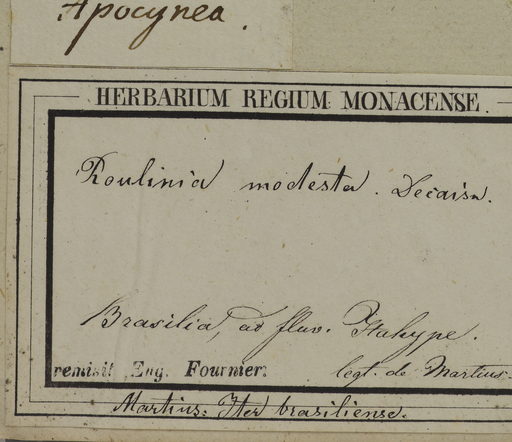 Apocynea.
HERBARIUM REGIUM MONACENSE.
Roulinia modesta. Decaisn.
Brasilia, ad fluv. Itahype.
remisit Eug. Fournier.
legt. de Martius.
Martius: Iter brasiliense.